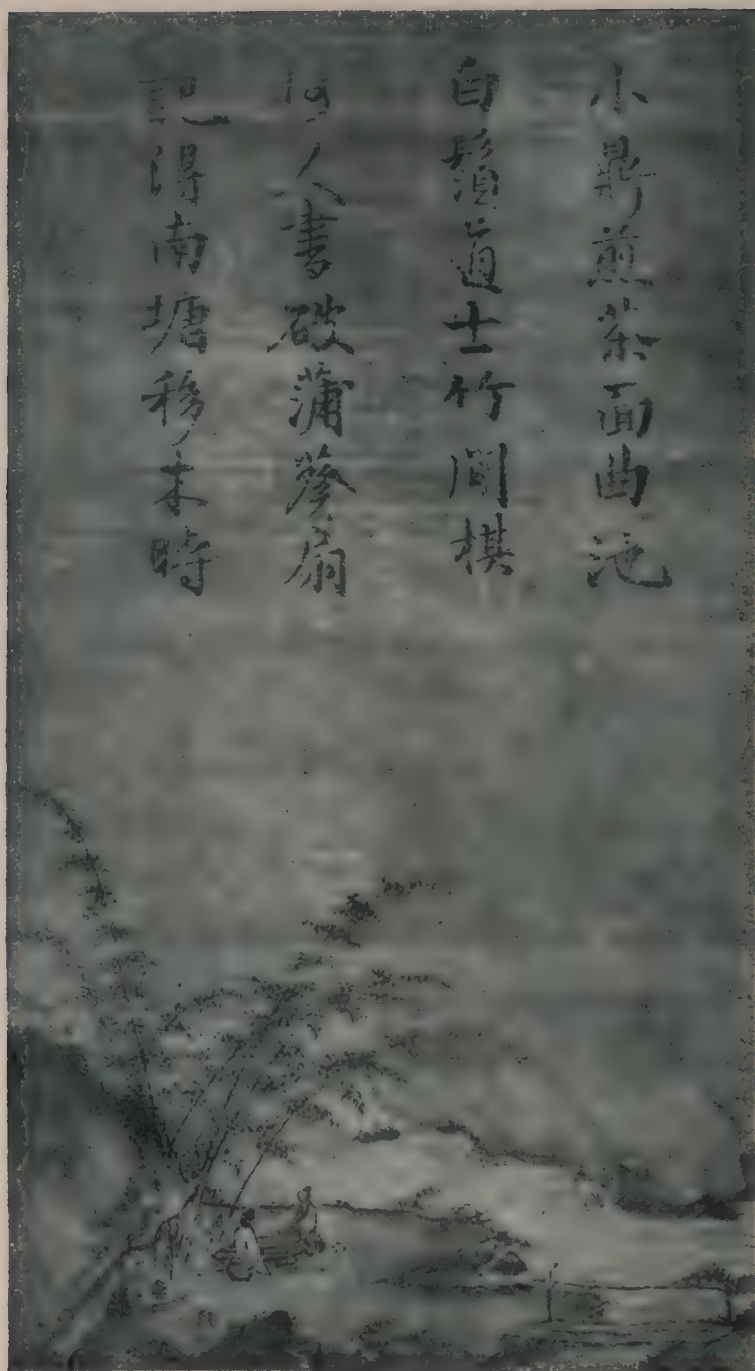 小鼎煎茶面曲池
白鬚道士竹間棋
何人書破蒲葵扇
記得南塘移末時